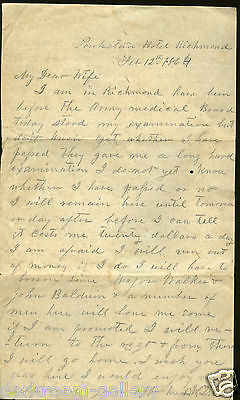 Powhatan Hotel Richmond
Feb 12th 1864
My Dear Wife
I am in Richmond have been
before the Army medical Board
today stood my examination but
dont know yet whether I have
passed they gave me a long hard
examination I do not yet know
whether I have passed or no
I will remain here until tomorrow
or day after before I can tell
it costs me twenty dollars a day
I am afraid I will run out
of money if I do I will have to
borrow some Major Walker &
John Baldwin & a number of
men here will loan me some
if I am promoted I will re-
turn to the regt & from there
I will go home I wish you
was here I would enjoy